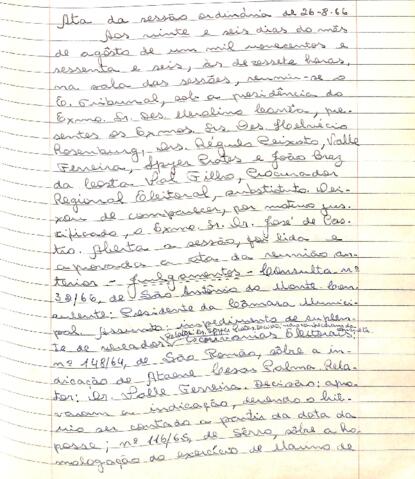 Ata da sessão ordinária de 26-8-66
Aos vinte e seis dias do mês
de agôsto de um mil novecentos e
sessenta e seis, às dezessete horas,
na sala das sessões, reuniu-se o
E. Tribunal, sob a presidência do
Exmo. Sr. Des. Merolino Corrêa, pre-
sentes os Exmos. Srs. Des. Helvécio
Rosenburg, Drs. Régulo Peixoto, Valle
Ferreira, Spyer Prates e João Braz
da Costa Val Filho, Procurador
Regional Eleitoral, substituto. Dei-
xou de comparecer, por motivo jus-
tificado, o Exmo. Sr. Dr. José de Cas-
tro. Aberta a sessão, foi lida e
aprovada a ata da reunião an-
terior - Julgamentos - Consulta nº
30/66, de Santo Antônio do Monte Con-
sulente: Presidente da Câmara Munici-
pal Assunto: impedimento de suplen-
te de vereador
Economias Eleitorais:
nº 148/64, de São Romão, sôbre a in-
dicação de Cesar Palma. Rela-
tor: Dr. Valle Ferreira. Decisão: apro-
varam a indicação, devendo o biê-
nio ser contado a partir da data da
posse; nº 116/65, de Sêrro, sôbre a ho-
mologação do exercício de de